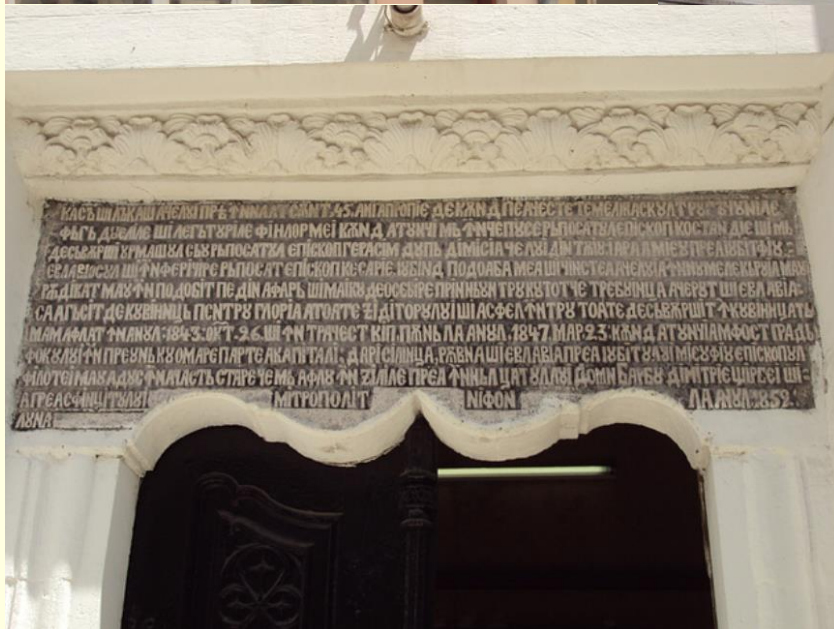 КАСЪ ШИ ЛЪКАШ АЧЕЛУИ ПРѢ ꙞННАЛТ СѪНТ. 45. АНГАПРОПІЕ ДЕ КѪНД ПЕ АЧЕСТЕ ТЕМЕЛІЖАСКУЛ
ДꙋЕЛИЕ ШИ ЛЕГЪТꙋРИЛЕ ФІИЛОР МЕІ КѪНД АТꙋНЧИ МЪ ꙞНЧЕПꙋСЕ РЪПОСАТꙋЛ ЕПІСКОП КОСТАНДІЕ ШИ МІ
ДЕСЪВѪРШИ ꙋРМАШꙋЛ СЪꙋ РЪПОСАТꙋЛ ЕПІСКОП ГЕРАСІМ ДꙋПЪ ДІМІСІА ЧЕЛꙋІ ДІНТѪІꙋ ІАРЪ АЛ МІЕꙋ ПРЕА ІꙋБІТ ФІꙋ
ЕВЛАВІОСꙋЛ ШИ ꙞН ФЕРІЧІРЕ РЪПОСАТ ЕПІСКОП КЕСАРІЕ, ІꙋБІНД ПОДОАБА МЕА ШИ ЧІНСТЕА
РѪДІКАТ МАꙋ ꙞНПОДОБІТ ПЕ ДІНАФАРЪ ШИ МАІ КꙋДЕОСЕБІРЕ ПРІННЫꙋНТРꙋ КꙋТОТ ЧЕ ТРЕБꙋІНЦА АЧЕРꙋТ ШИ ЕВЛАВІА-
СА АГЪСІТ ДЕКꙋВІІНЦЪ ПЕНТРꙋ ГЛОРІА АТОАТЕ ЗІДІТОРꙋЛꙋІ ШИ АСФЕЛ ꙞНТРꙋ ТОАТЕ ДЕСЪВѪРШІТ
МАМ АФЛАТ ꙞН АНꙋЛ: 1843: ОКТ. 26. ШИ ꙞНТРАЧЕСТ КІП ПѪНЪ ЛА АНꙋЛ 1847. МАР. 23: КѪНД АТꙋНЧІ АМ ФОСТ ПРАДЪ
ФОКꙋЛꙋІ ꙞНПРЕꙋНЪ КꙋО МАРЕ ПАРТЕ А КАПІТАЛІ: ДАР СІЛІНЦА, РѪВНА ШИ ЕВЛАВІА ПРЕА ІꙋБІТꙋЛꙋІ МІЕꙋ ФІꙋ ЕПІСКОПꙋЛ
ФІЛОТЕІ МАꙋ АДꙋС ꙞН АЧАСТЪ СТАРЕ ЧЕ МЪ АФЛꙋ ꙞН ЗІЛЕЛЕ ПРЕА ꙞННЪЛЦАТꙋЛꙋІ ДОМН БАРБꙋ ДІМІТРІЕ ЩІРБЕІ ШИ
А ПРЕАСФІНЦІТꙋЛꙋІ МІТРОПОЛІТ НІФОН ЛА АНꙋЛ: 1852.
ЛꙋНА